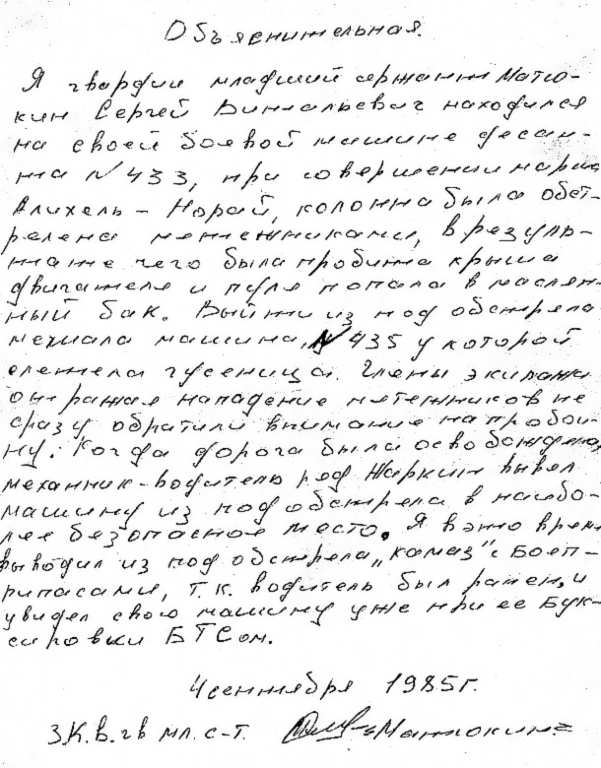 Объяснительная.
Я гвардии младший сержант Матю-
кин Сергей Витальевич находился
на своей боевой машине десан-
та N 433, при совершении марша
Алихель - Нарай, колонна была обст-
релена мятежниками, в резуль-
тате чего была пробита крыша
двигателя и пуля попала в маслян-
ный бак. Выйти из под обстрела
мешала машина, N 435 у которой
слетела гусеница. Члены экипажа
отражая нападение мятежников не
сразу обратили внимание на пробои-
ну. Когда дорога была освобождена,
механник-водитель ряд Жаркин вывел
машину из под обстрела в наибо-
лее безопасное место. Я в это время
выводил из под обстрела „камаз" с Боеп-
рипасами, т.к. водитель был ранен, и
увидел свою машину уже при ее Бук-
сировки БТСом.
4 сентября 1985г.
З.К.В. гв мл. с-т. Матюкин